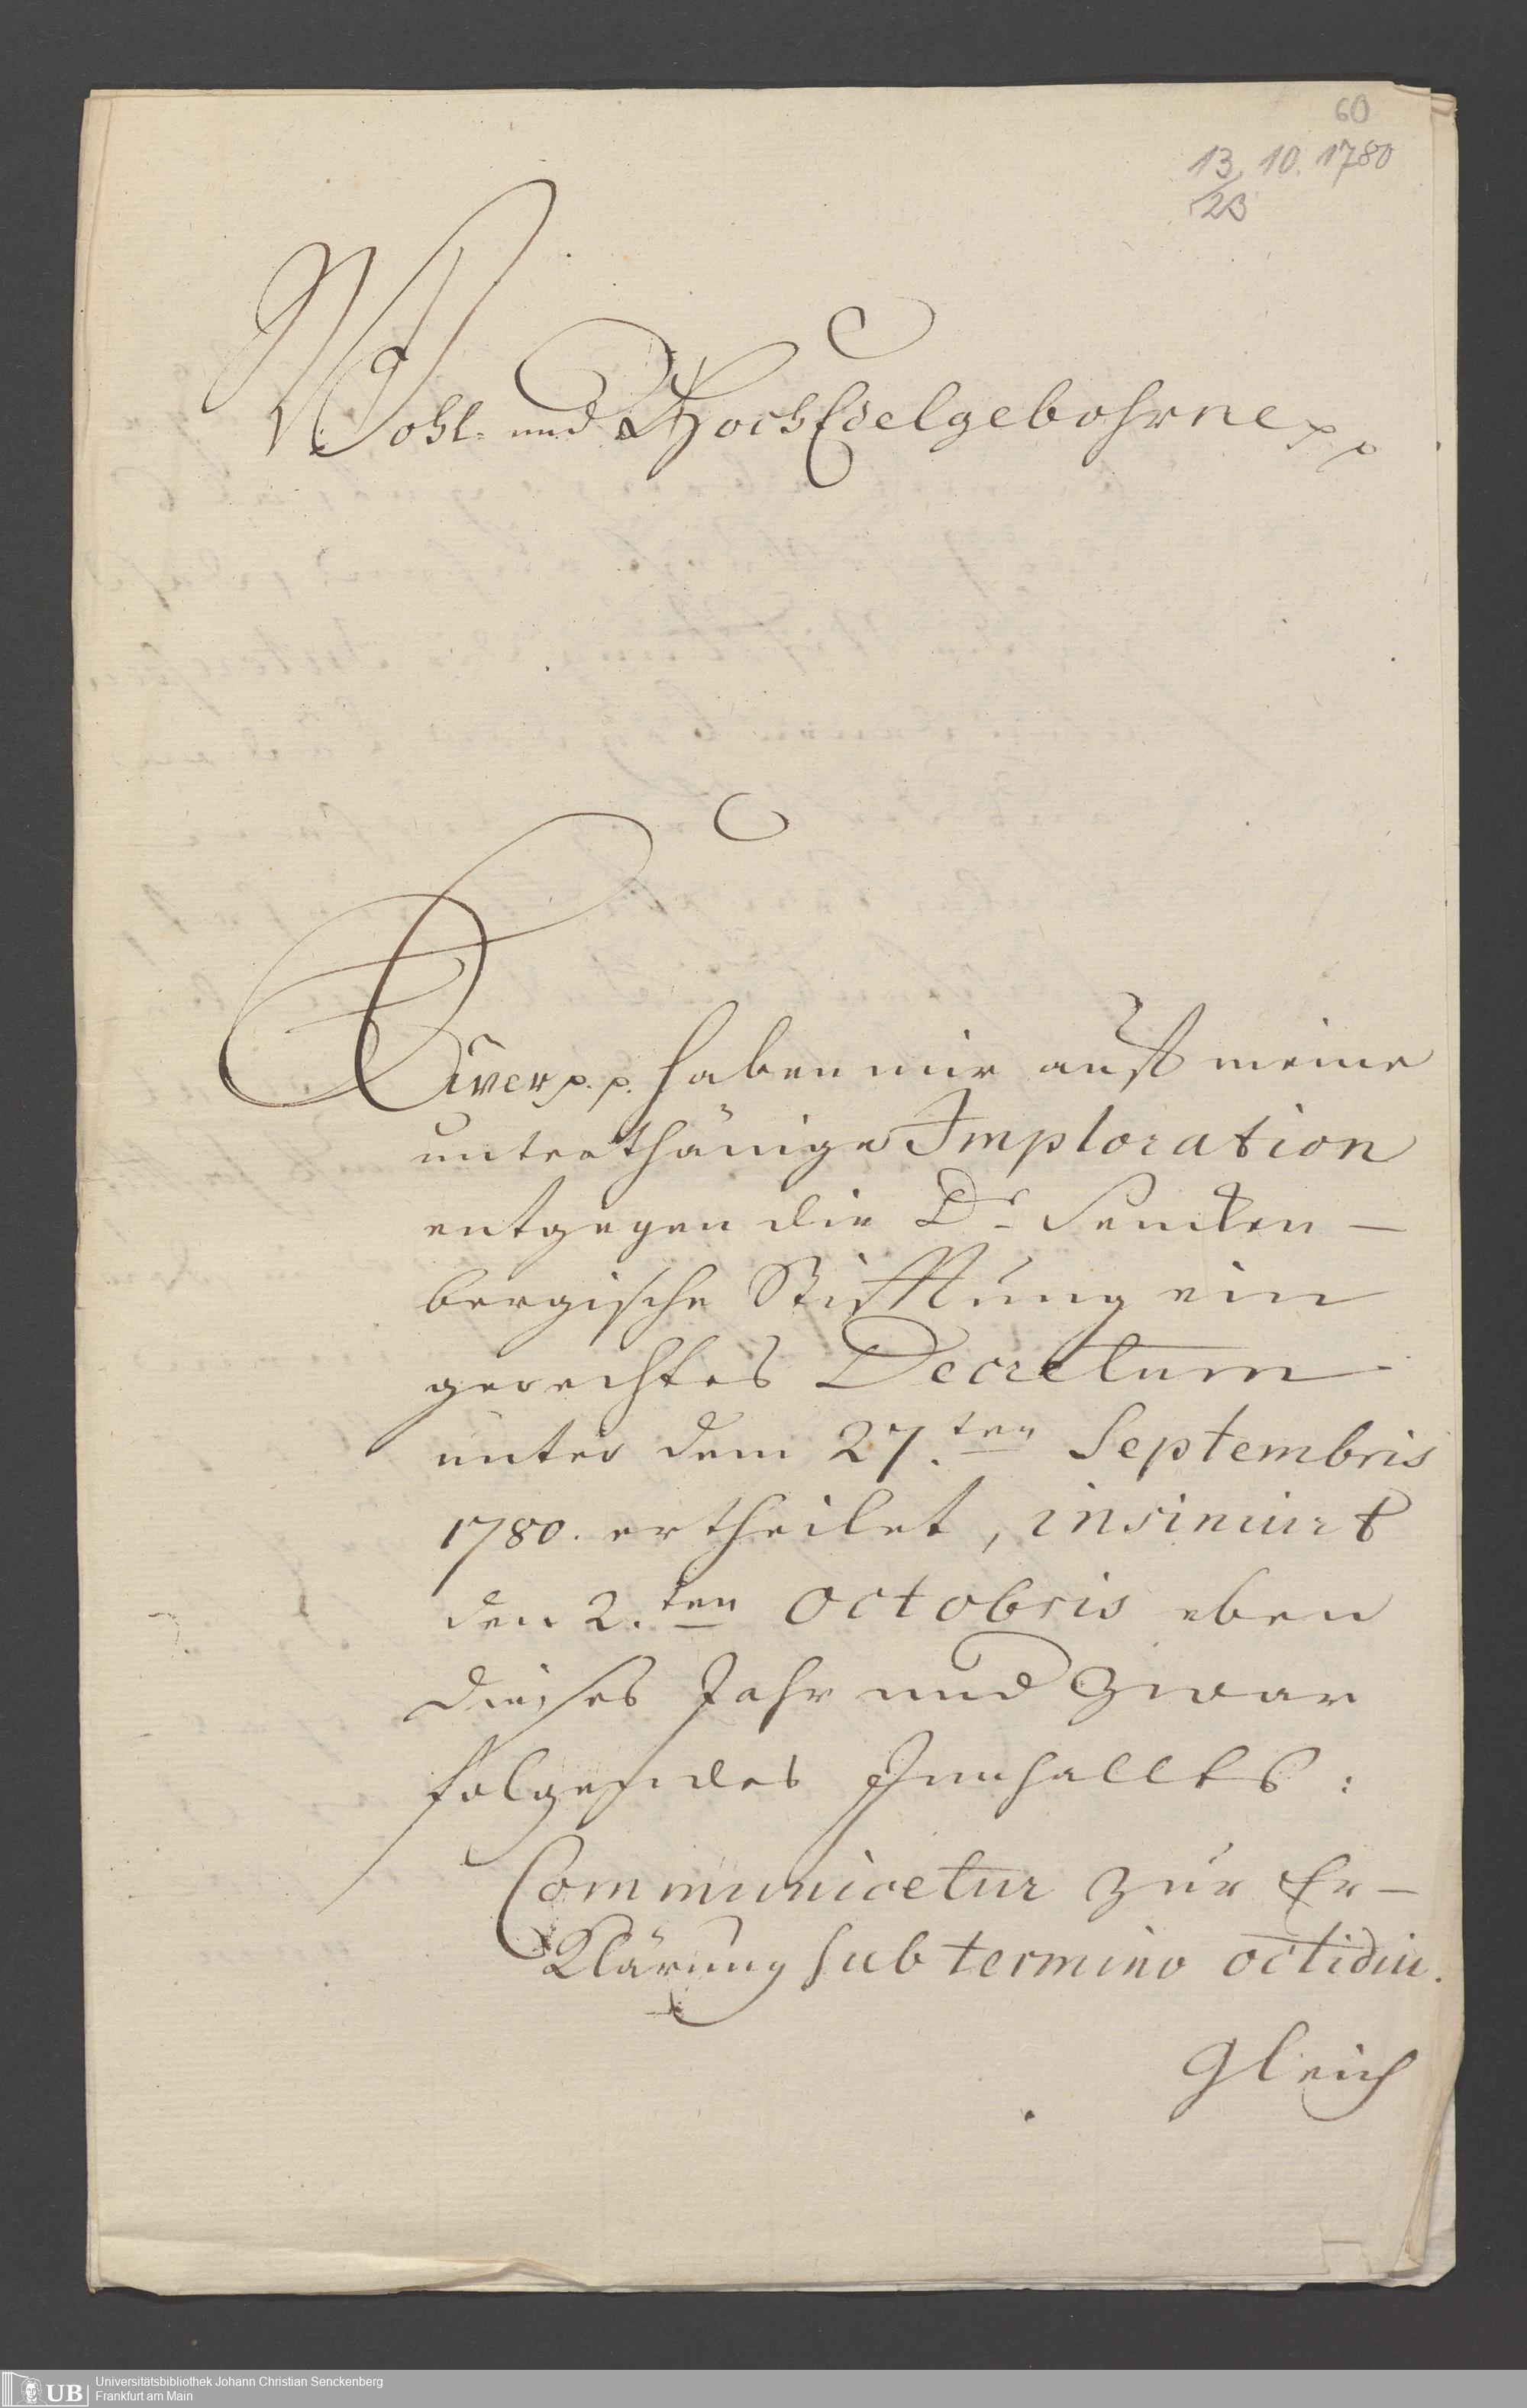 60
13. 10. 1780
23
Wohl- und HochEdelgebohrne pp
Euer p. p. haben mir auf meine
unterthänige Imploration
entgegen die Dr Sencken-
bergische Stifftung ein
gerechtes Decretum
unter dem 27.ten Septembris
1780. ertheilet, insinuirt
den 2.ten Octobris eben
dieses Jahr und zwar
folgendes Innhallts:
Communicetur zur Er-
klärung sub termino octidui.
Gleich
UB
Universitätsbibliothek Johann Christian Senckenberg
Frankfurt am Main